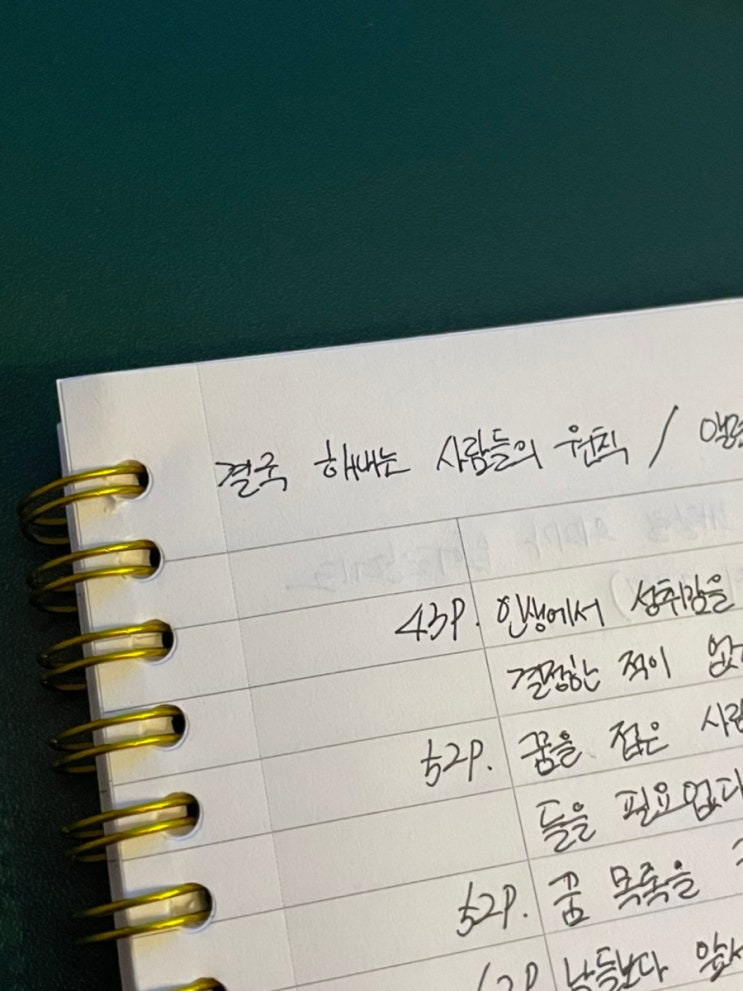 결국 해내는 사람들의 원칙 /
43P. 인생에서 성취감을
결정한 적이
52P. 꿈을 접은
들을 필요없다
52P. 꿈 목록을
남들보다